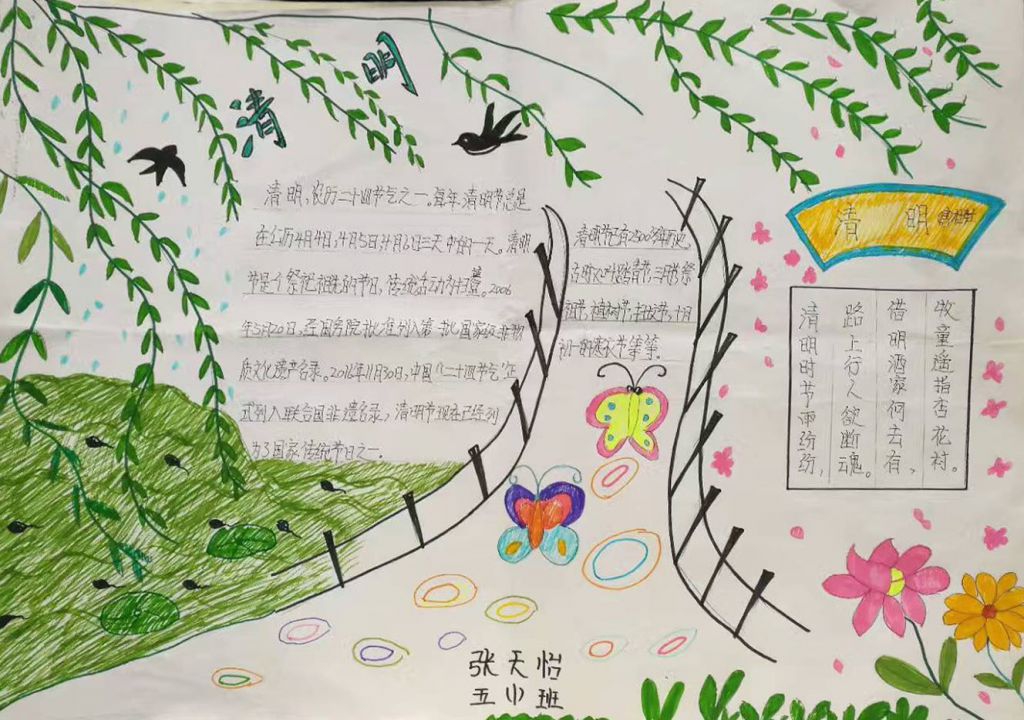 清明
清明,农历二十四节气之一。每年清明节总是
在公历4月4日,4月5日4月6日三天中的一天。清明
节是个祭祀祖先的节日,传统活动为扫墓。2006
年5月20日,经国务院批准列入第一批国家级非物
质文化遗产名录。2016年11月30日,中国“二十四节气”正
式列入联合国非遗名录,清明节现在已经列
为了国家传统节日之一.
清明节已有2500多年历史。
三月祭
祖节,植树节,扫坟节,十月
初一的寒衣节等等.
清明
清明时节雨纷纷,
路上行人欲断魂。
借明酒家何去有,
牧童遥指杏花村。
张天怡
五(1)班